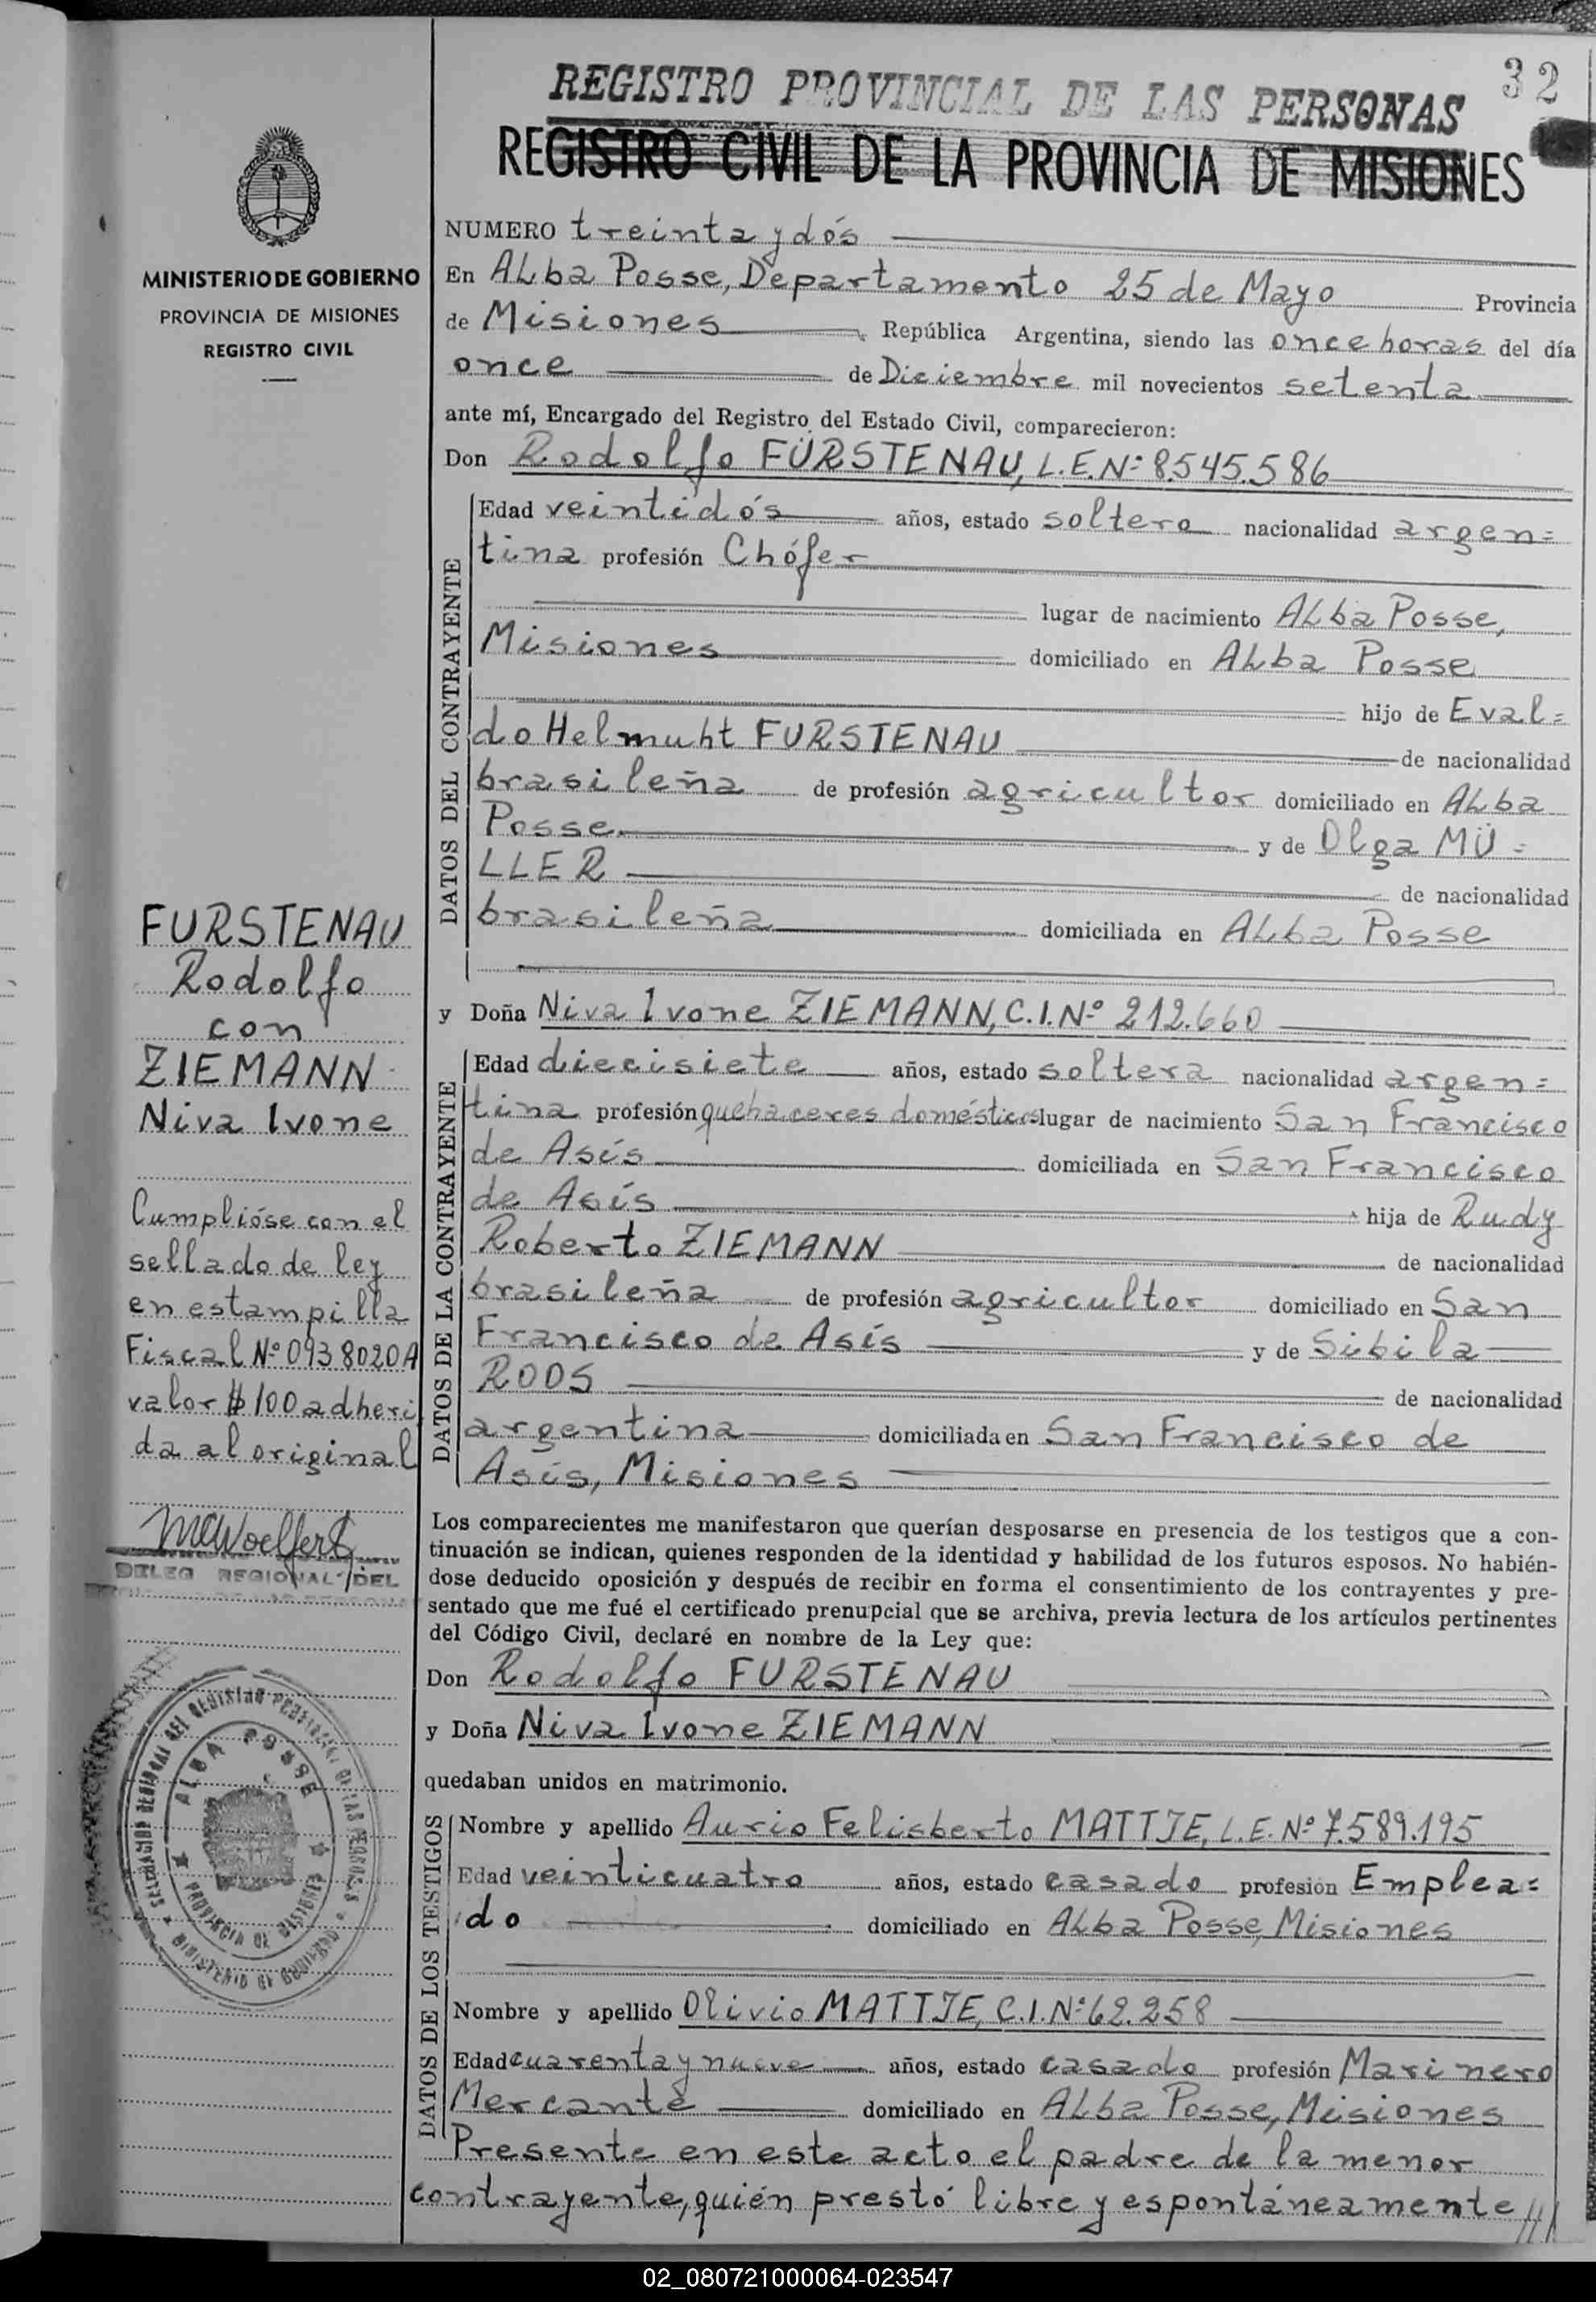 32
REGISTRO PROVINCIAL DE LAS PERSONAS
REGISTRO CIVIL DE LA PROVINCIA DE MISIONES
MINISTERIO DE GOBIERNO
PROVINCIA DE MISIONES
REGISTRO CIVIL
NUMERO treinta y dós
En Alba Posse, Departamento 25 de Mayo Provincia
de Misiones República Argentina, siendo las once horas del día
once de Diciembre mil novecientos setenta
ante mí, Encargado del Registro del Estado Civil, comparecieron:
Don Rodolfo FÜRSTENAU, L.E.Nº 8.545.586
DATOS DEL CONTRAYENTE
Edad veintidós años, estado soltero nacionalidad argen=
tina profesión Chófer
lugar de nacimiento Alba Posse,
Misiones domiciliado en Alba Posse
hijo de Eval=
do Helmuht FURSTENAU de nacionalidad
brasileña de profesión agricultor domiciliado en Alba
Posse y de Olga MÜ=
LLER de nacionalidad
brasileña domiciliada en Alba Posse
y Doña Niva Ivone ZIEMANN, C.I.Nº 212.660
DATOS DE LA CONTRAYENTE
Edad diecisiete años, estado soltera nacionalidad argen=
tina profesión quehaceres domésticos lugar de nacimiento San Francisco
de Asís domiciliada en San Francisco
de Asís hija de Rudy
Roberto ZIEMANN de nacionalidad
brasileña de profesión agricultor domiciliado en San
Francisco de Asís y de Sibila
ROOS de nacionalidad
argentina domiciliada en San Francisco de
Asís, Misiones
FURSTENAU
Rodolfo
con
ZIEMANN
Niva Ivone
Cumplióse con el
sellado de ley
en estampilla
Fiscal Nº 0938020A
valor $ 100 adheri
da al original
DELEG REGIONAL DEL
Los comparecientes me manifestaron que querían desposarse en presencia de los testigos que a con-
tinuación se indican, quienes responden de la identidad y habilidad de los futuros esposos. No habién-
dose deducido oposición y después de recibir en forma el consentimiento de los contrayentes y pre-
sentado que me fué el certificado prenupcial que se archiva, previa lectura de los artículos pertinentes
del Código Civil, declaré en nombre de la Ley que:
Don Rodolfo FURSTENAU
y Doña Niva Ivone ZIEMANN
quedaban unidos en matrimonio.
ALBA POSSE
PROVINCIA DE MISIONES
MINISTERIO DE GOBIERNO
DATOS DE LOS TESTIGOS
Nombre y apellido Aurio Felisberto MATTJE, L.E. Nº 7.589.195
Edad veinticuatro años, estado casado profesión Emplea=
do domiciliado en Alba Posse, Misiones
Nombre y apellido Olivio MATTJE, C.I.Nº 62.258
Edad cuarenta y nueve años, estado casado profesión Marinero
Mercante domiciliado en Alba Posse, Misiones
Presente en este acto el padre de la menor
contrayente, quién prestó libre y espontáneamente ///
02_080721000064-023547